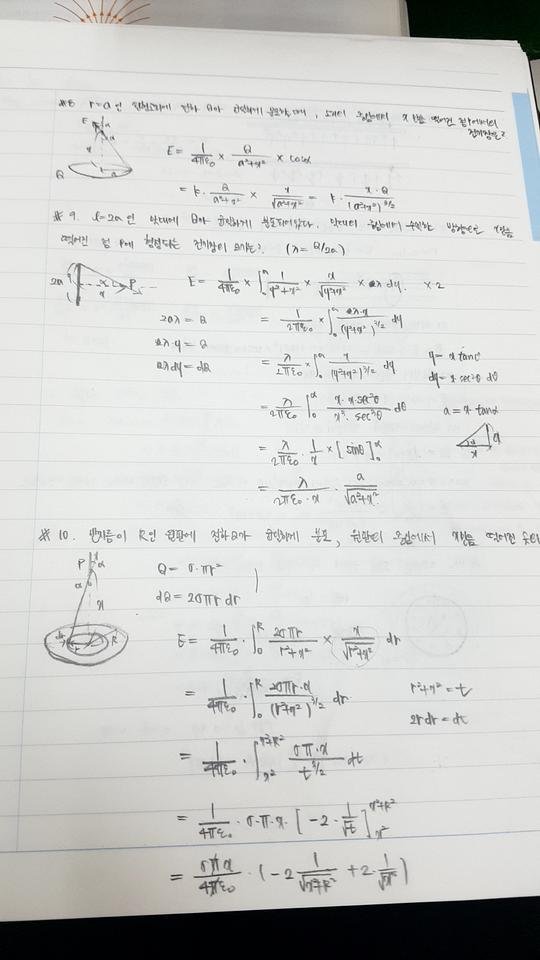 r=a인 원형고리에 전하 Q가 균일하게 분포 , 고리의 중심에서 x만큼 떨어진 점 P에서의
전기장은?
E α
α
x
Q a
E = 1/4πε₀ × Q/(a²+x²) × cosα
= k · Q/(a²+x²) × x/√(a²+x²) = k · x·Q/(a²+x²)^(3/2)
※ 9. l=2a인 막대에 Q가 균일하게 분포되어있다. 막대의 중심에서 수직 방향으로 x만큼
떨어진 점 P에 형성되는 전기장의 크기는? (λ = Q/2a)
2a x P
E = 1/4πε₀ × ∫₀ᵃ 1/(y²+x²) × x/√(y²+x²) × λ dy × 2
2aλ = Q
= 1/2πε₀ × ∫₀ᵃ λ·x/(y²+x²)^(3/2) dy
2λ·y = Q
2λdy = dQ
= λ/2πε₀ × ∫₀ᵃ x/(y²+x²)^(3/2) dy
y = x tanθ
dy = x·sec²θ dθ
= λ/2πε₀ ∫₀^α x·x·sec²θ/(x³·sec³θ) dθ
a = x·tanα
= λ/2πε₀ · 1/x × [sinθ]₀^α
α x a
= λ/(2πε₀·x) · a/√(a²+x²)
※ 10. 반지름이 R인 원판에 전하 Q가 균일하게 분포, 원판의 중심에서 x만큼 떨어진
P α
α
x
dr r R
Q = σ·πr²
dQ = 2σπr dr
E = 1/4πε₀ · ∫₀ᴿ 2σπr/(r²+x²) × x/√(r²+x²) dr
= 1/4πε₀ · ∫₀ᴿ 2σπr·x/(r²+x²)^(3/2) dr
r²+x² = t
2rdr = dt
= 1/4πε₀ · ∫_{x²}^{x²+R²} σπ·x/t^(3/2) dt
= 1/4πε₀ · σ·π·x · [-2 · 1/√t]_{x²}^{x²+R²}
= σπx/4πε₀ · (-2 1/√(x²+R²) + 2 · 1/√x²)